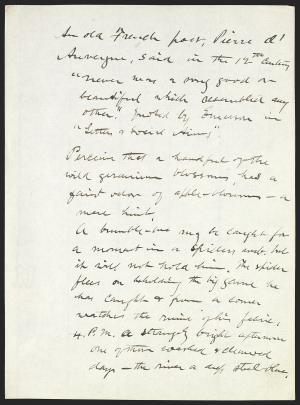 An old French poet, Pierre d'
Auvergne, said in the 12th Century
"never was a song good or
beautiful which resembled any
other." Quoted by Emerson in
"Letters & Social Aims".
Perceive that a handful of the
wild geranium blossoms, had a
faint odor of apple-blossoms – a
mere hint.
A bumble-bee may be caught for
a moment in a spiders web, but
it will not hold him. The spider
flees on beholding the big game he
has caught & from a corner
watches the ruin of his fabric.
4. P.M. a strangely bright afternoon
one of those washed & cleansed
days – the river a steel blue.